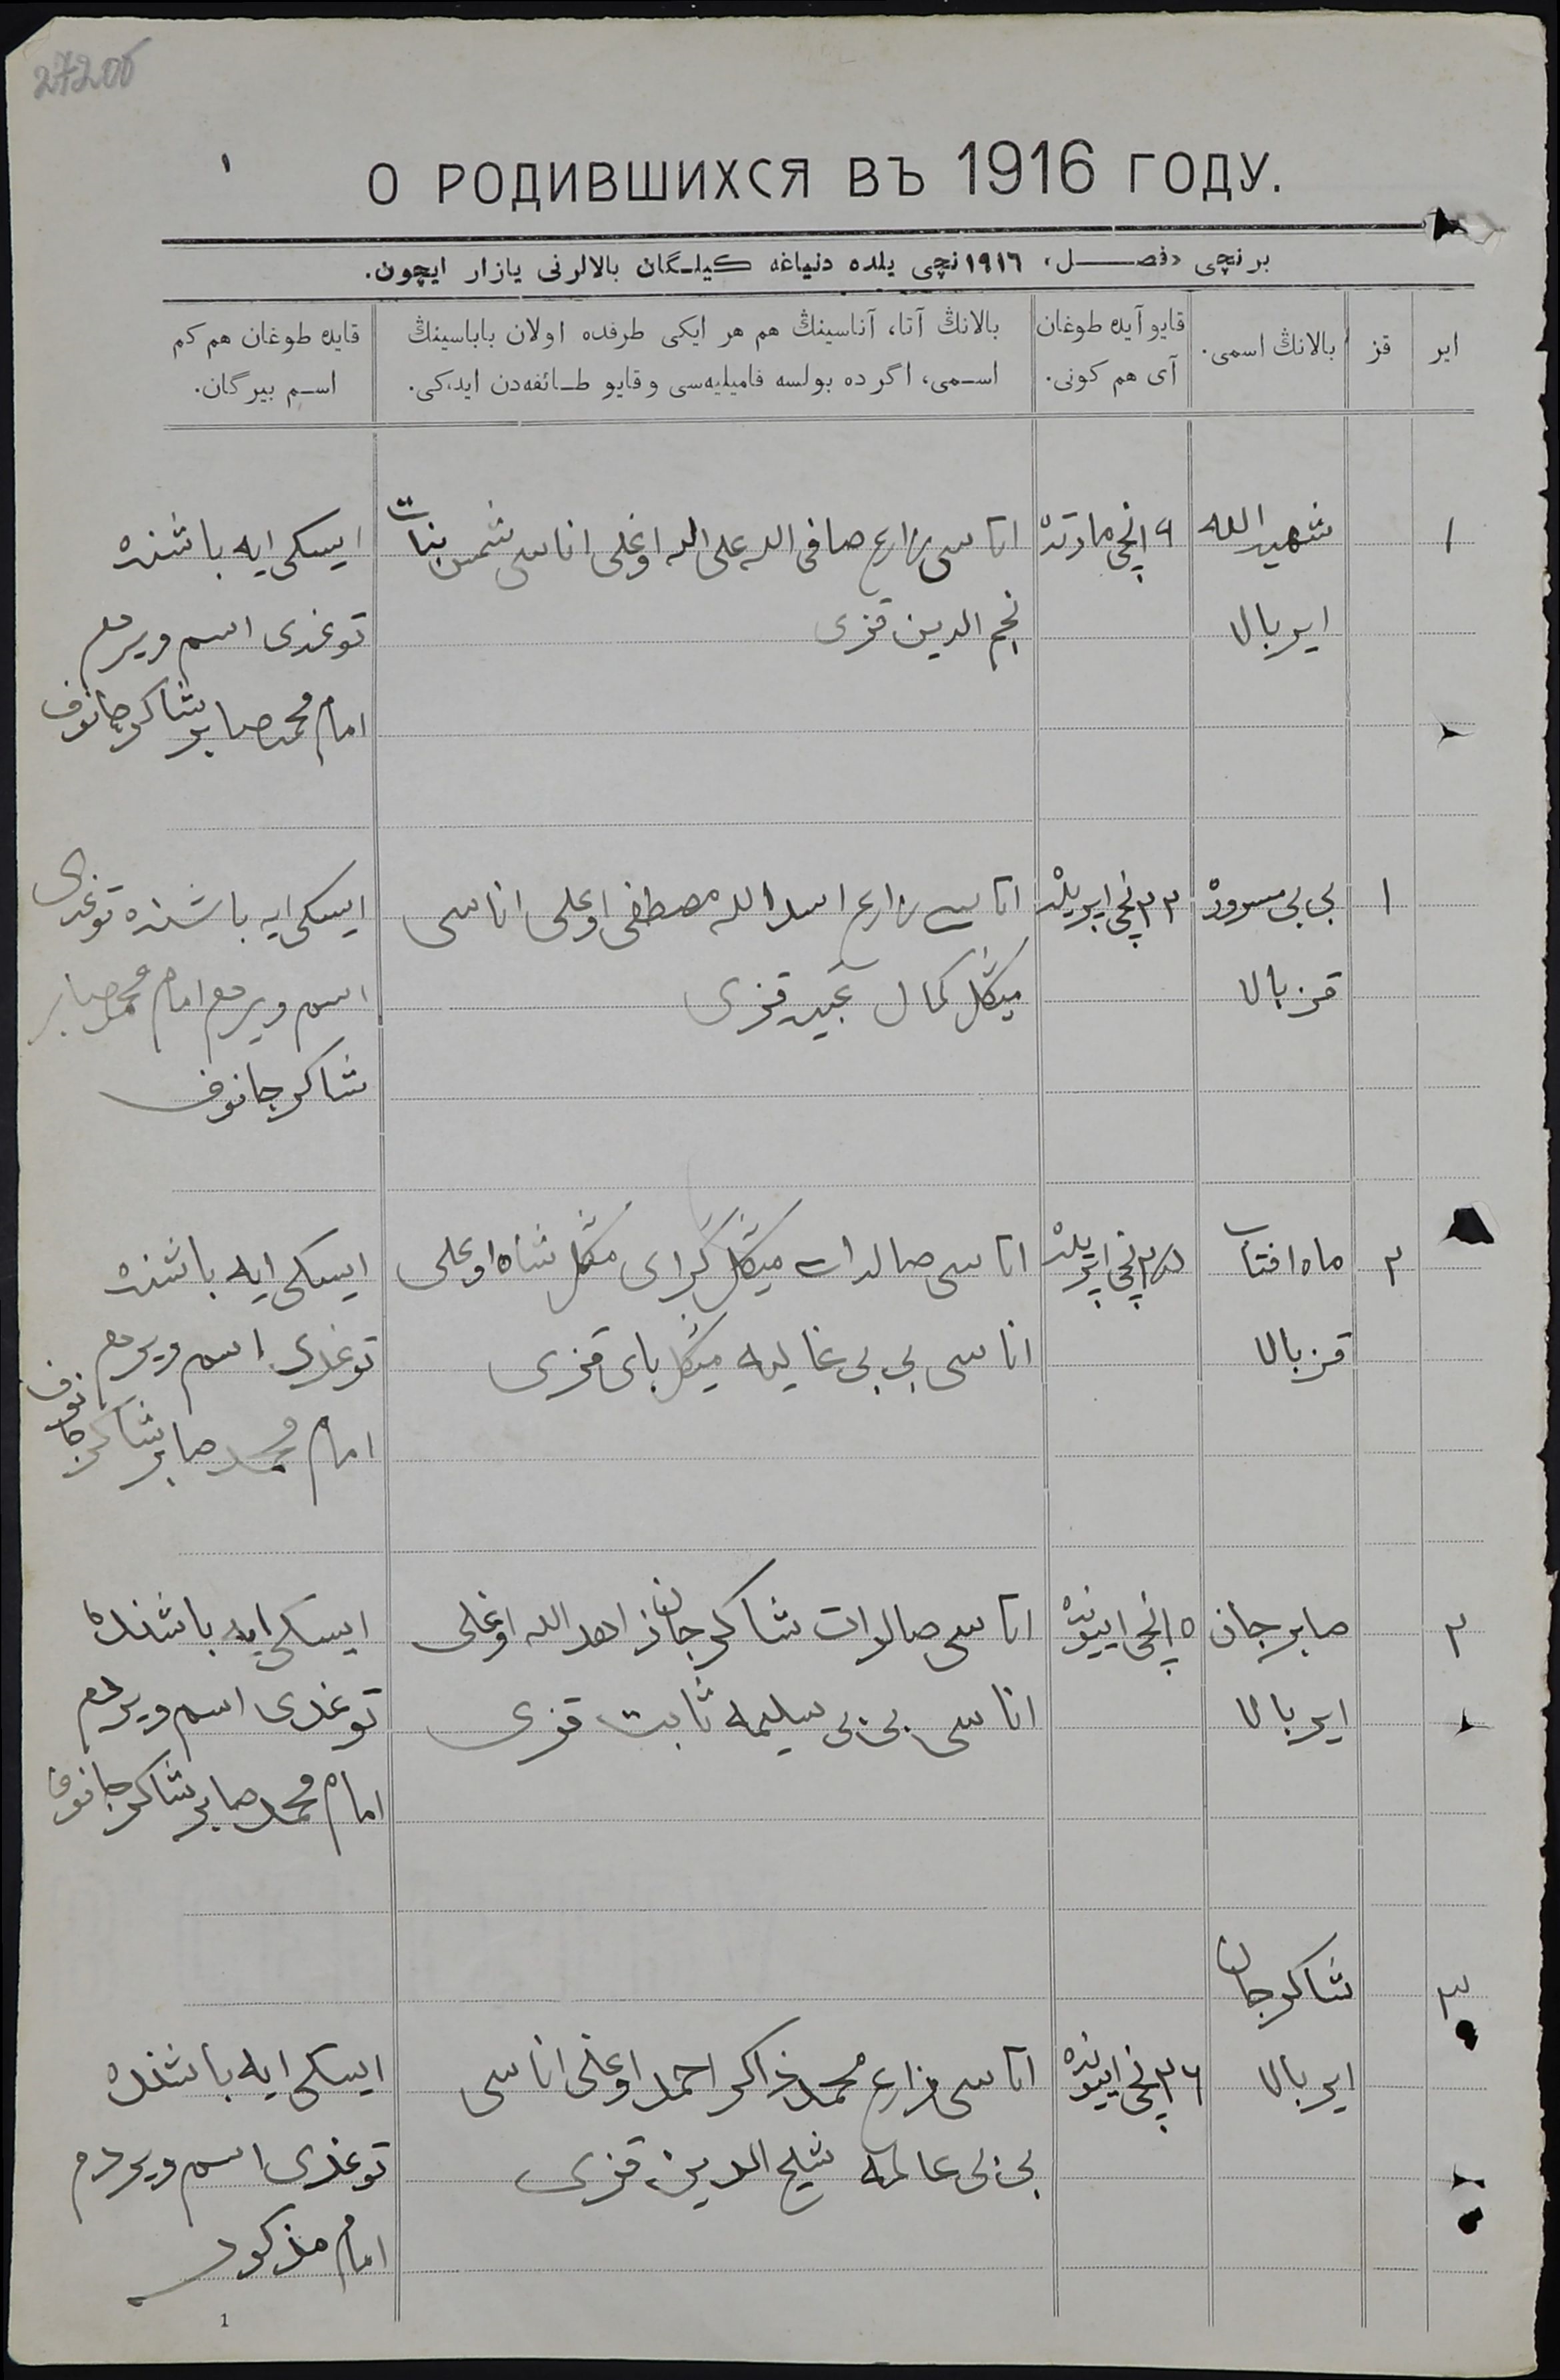 272об
١
О РОДИВШИХСЯ ВЪ 1916 ГОДУ.
برنچی «فصل»، ١٩١٦نچی یلده دنیاغه كیلگان بالالرنی یازار ایچون.
ایر
قز
بالانڭ اسمی.
قایو آیده طوغان
آی هم كونی.
بالانڭ آتا، آناسینڭ هم هر ایكی طرفده اولان باباسینڭ
اسمی، اگر ده بولسه فامیلیه‌سی و قایو طائفه‌دن ایدكی.
قایده طوغان هم كم
اسم بیرگان.
١
شهید الله
ایر بالا
٩ انچی مارتده
اتاسی زارع صافی الله علی الله اوغلی اناسی شمس بنات
نجم الدین قزی
ایسكی ایه باشنده
توغدی اسم ویردم
امام محمد صابر شاكرجانوف
١
بی بی مسروره
قز بالا
٢٣ نچی ابریلده
اتاسی زارع اسد الله مصطفی اوغلی اناسی
میڭل كمال قزی
ایسكی ایه باشنده توغدی
اسم ویردم امام محمد صابر
شاكرجانوف
٢
ماه افتاب
قز بالا
نچی ابریلده
اتاسی صالدات میڭل گرای مڭل شاه اوغلی
اناسی بی بی غالیه میڭل بای قزی
ایسكی ایه باشنده
توغدی اسم ویردم
امام محمد صابر شاكرجانوف
٢
صابر جان
ایر بالا
٥ انچی اییونده
اتاسی صالدات شاكرجان احد الله اوغلی
اناسی بی بی سلیمه ثابت قزی
ایسكی ایه باشنده
توغدی اسم ویردم
امام محمد صابر شاكرجانوف
٣
شاكرجان
ایر بالا
٢٦ نچی اییونده
اتاسی زارع محمد ذاكر احمد اوغلی اناسی
بی بی عالمه شیخ الدین قزی
ایسكی ایه باشنده
توغدی اسم ویردم
امام مذكور
1